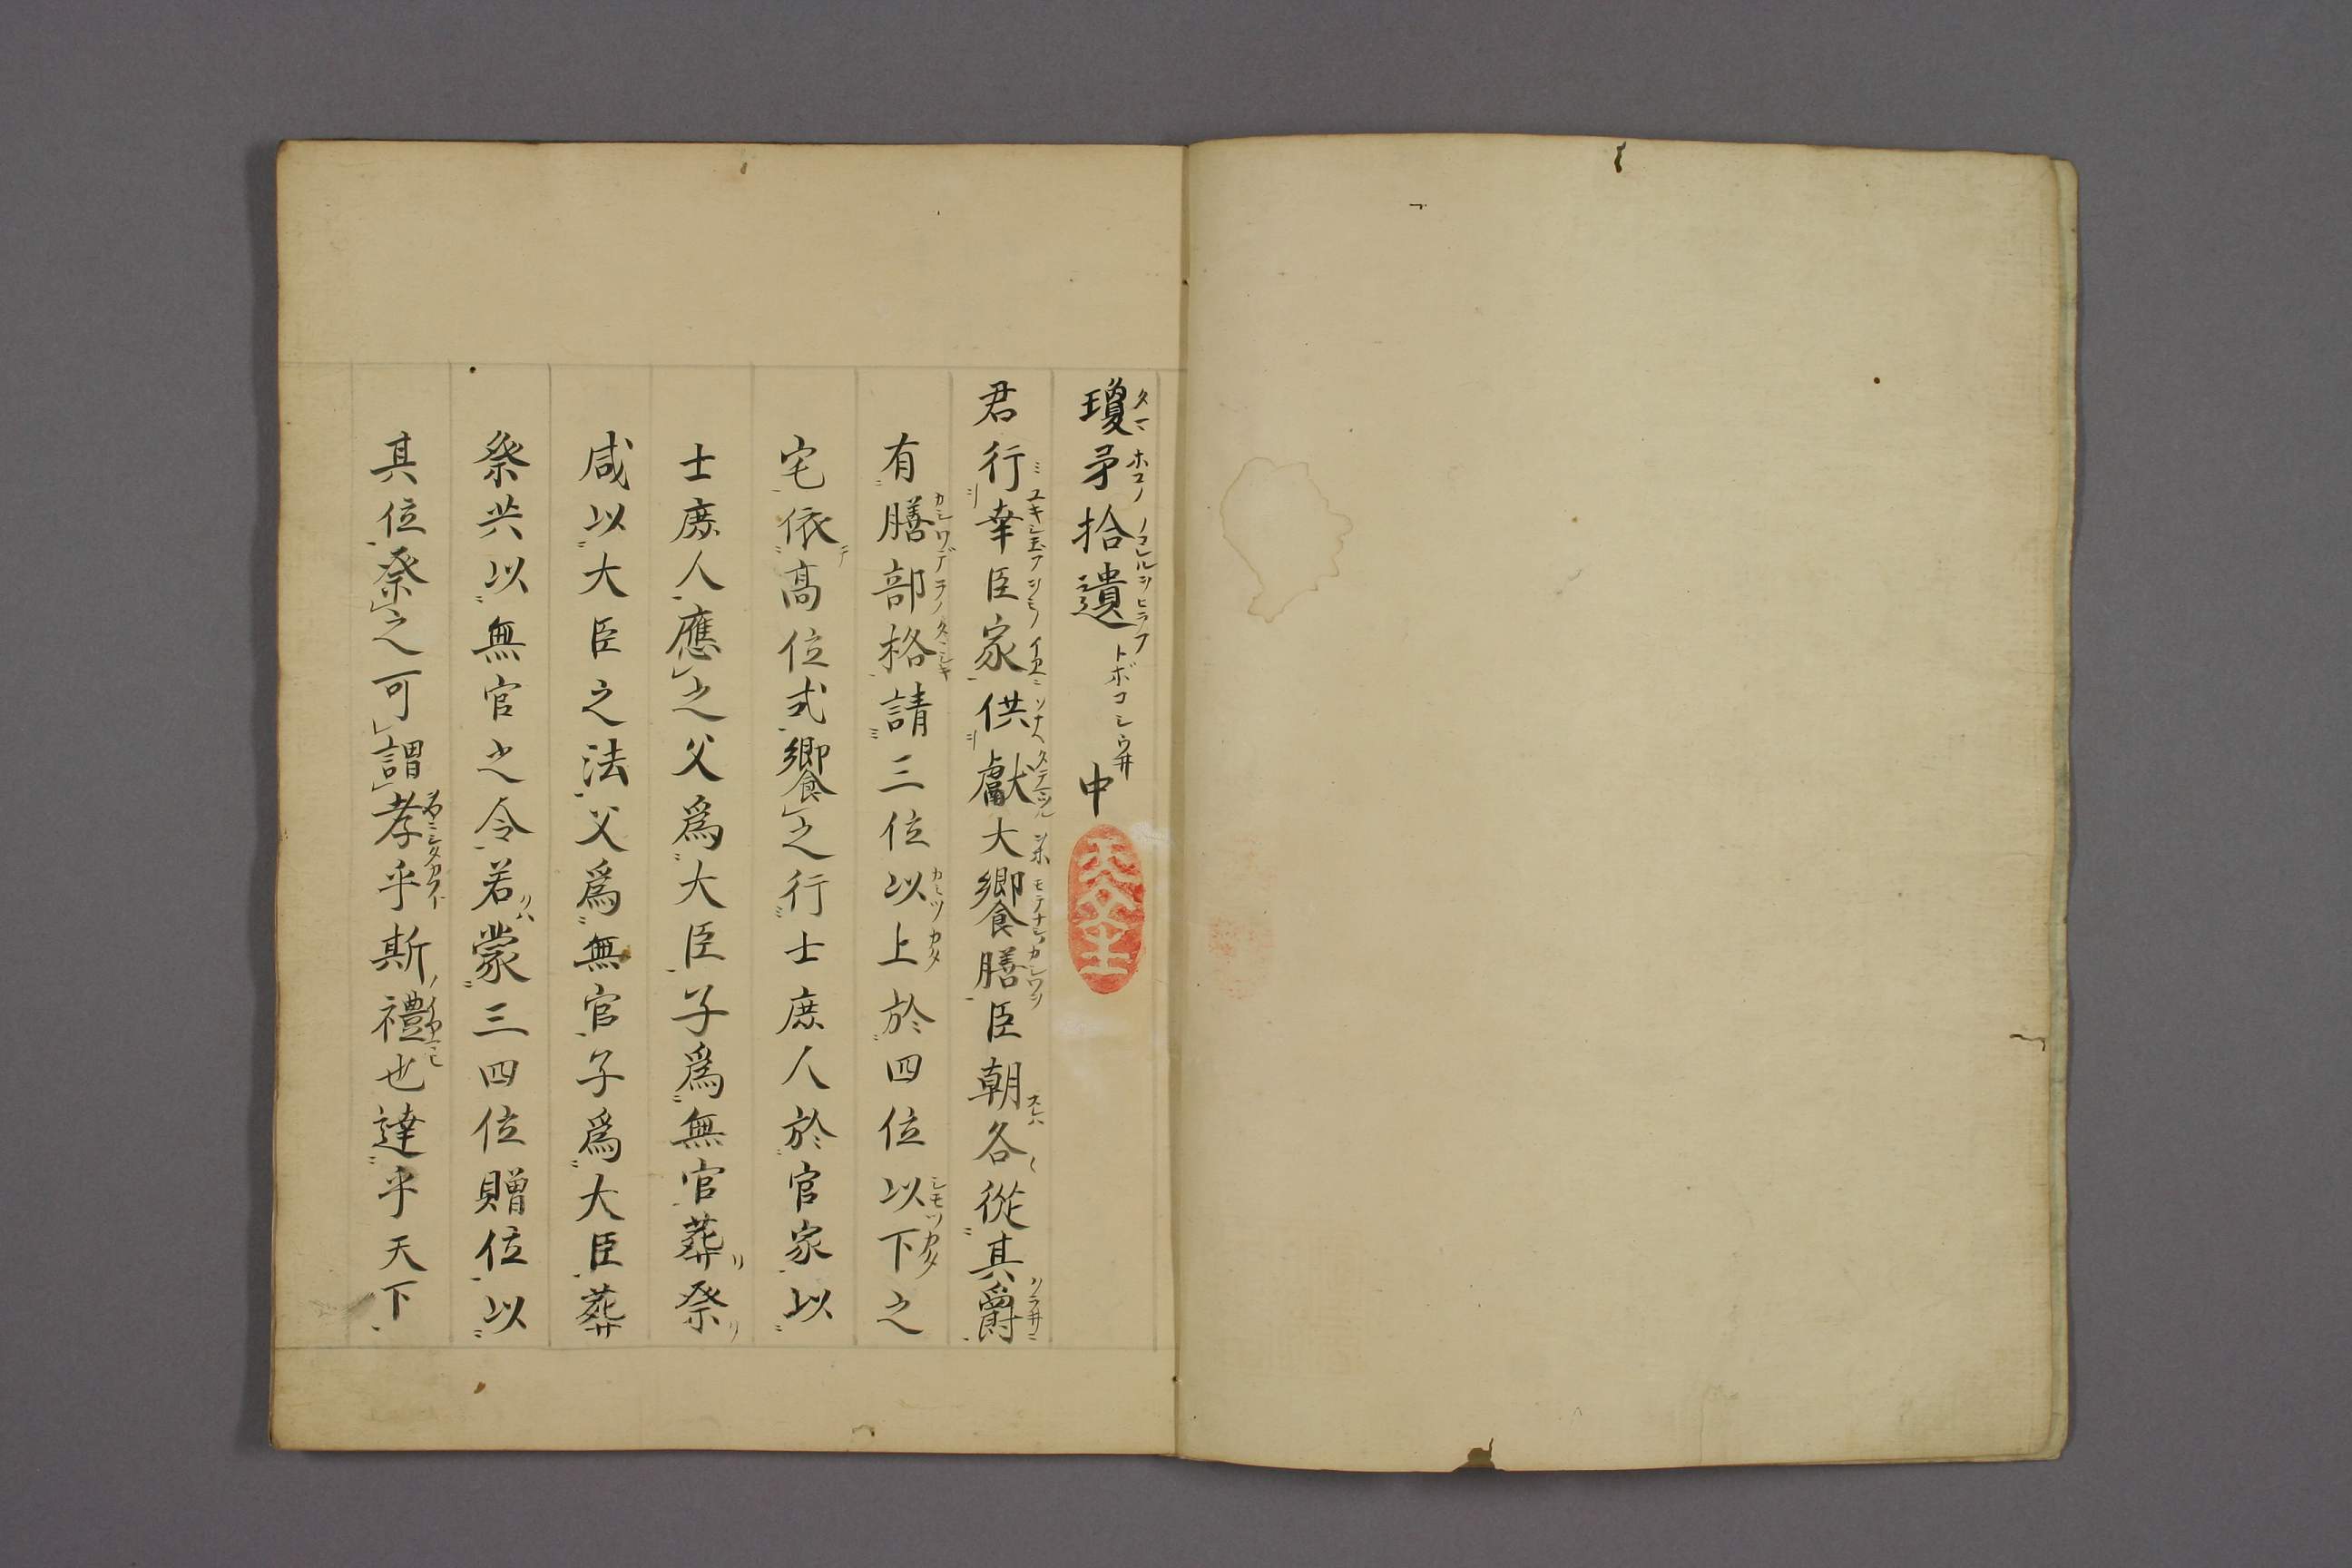 瓊矛拾遺 トボコシウヰ 中
君行幸臣家供獻大饗膳臣朝各從其爵
有膳部格請三位以上於四位以下之
宅依高位式饗之行士庶人於官家以
士庶人應之父爲大臣子爲無官葬祭
咸以大臣之法父爲無官子爲大臣葬
祭共以無官之令若蒙三四位贈位以
其位祭之可謂孝乎斯禮也達乎天下